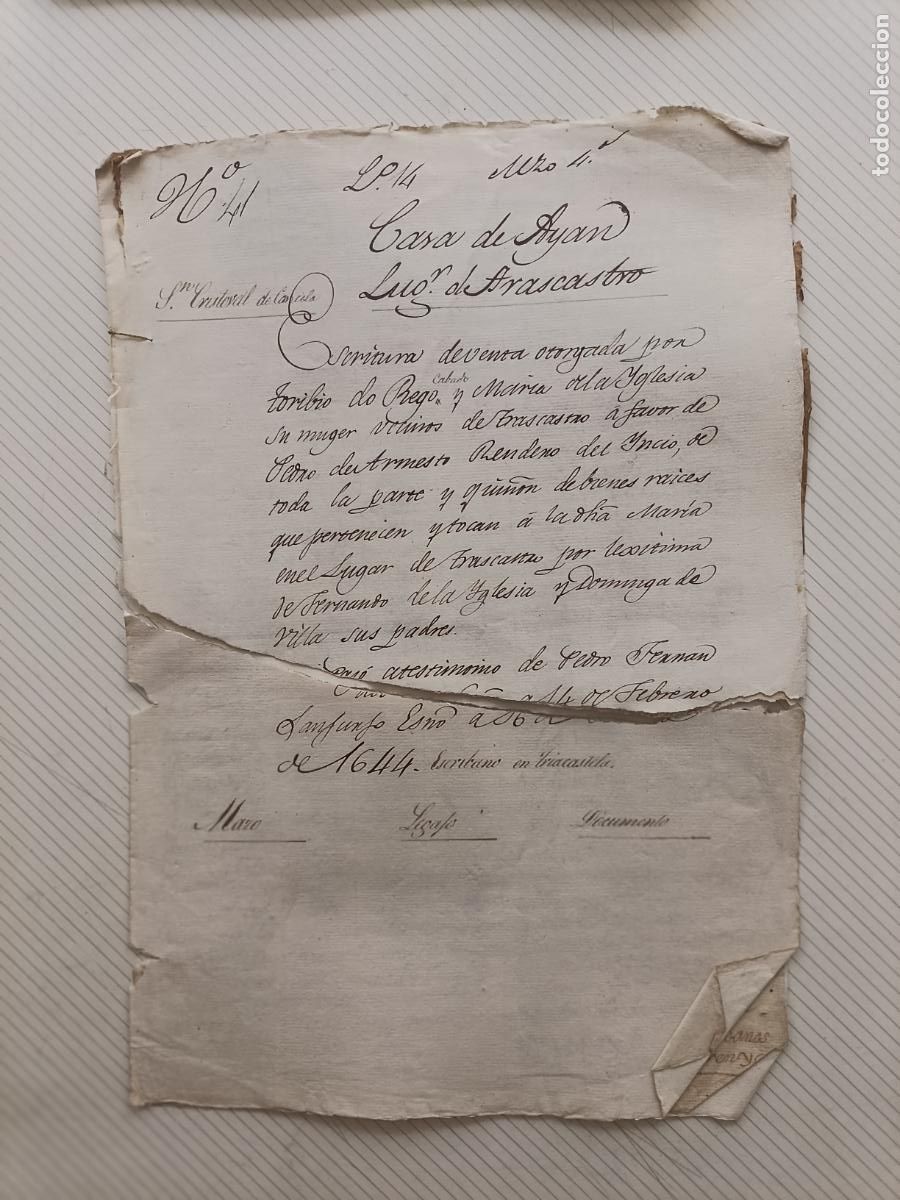 Nº 41 Lº. 14 Mzo 4.º
Casa de Ayan
Lugʳ. d. Trascastro
Sⁿ. Cristoval de Cancelo
Escritura de venta otorgada por
toribio do Rego Cabado y Maria de la Yglesia
su muger vecinos de Trascastro á favor de
Pedro de Armesto Rendero del Yncio, de
toda la parte y quiñon de bienes raices
que pertenecen y tocan á la dhã Maria
en el Lugar de Trascastro por lexitima
de Fernando de la Yglesia y Domynga de
Villa sus padres.
Pasó a testimonio de Pedro Fernan
Sanjurjo Esnõ a 14 de Febrero
de 1644. Escribano en Triacastela.
Mazo Legajo Documento
todocoleccion